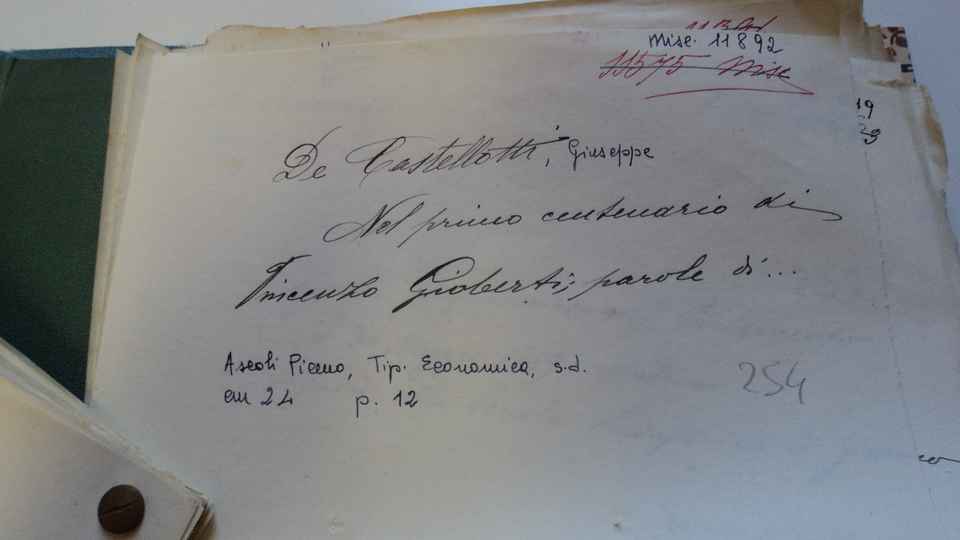 Misc. 11892
11575 Misc
De Castellotti, Giuseppe
Nel primo centenario di
Vincenzo Gioberti; parole di...
Ascoli Piceno, Tip. Economica, s.d.
cm 24 p. 12
254
19